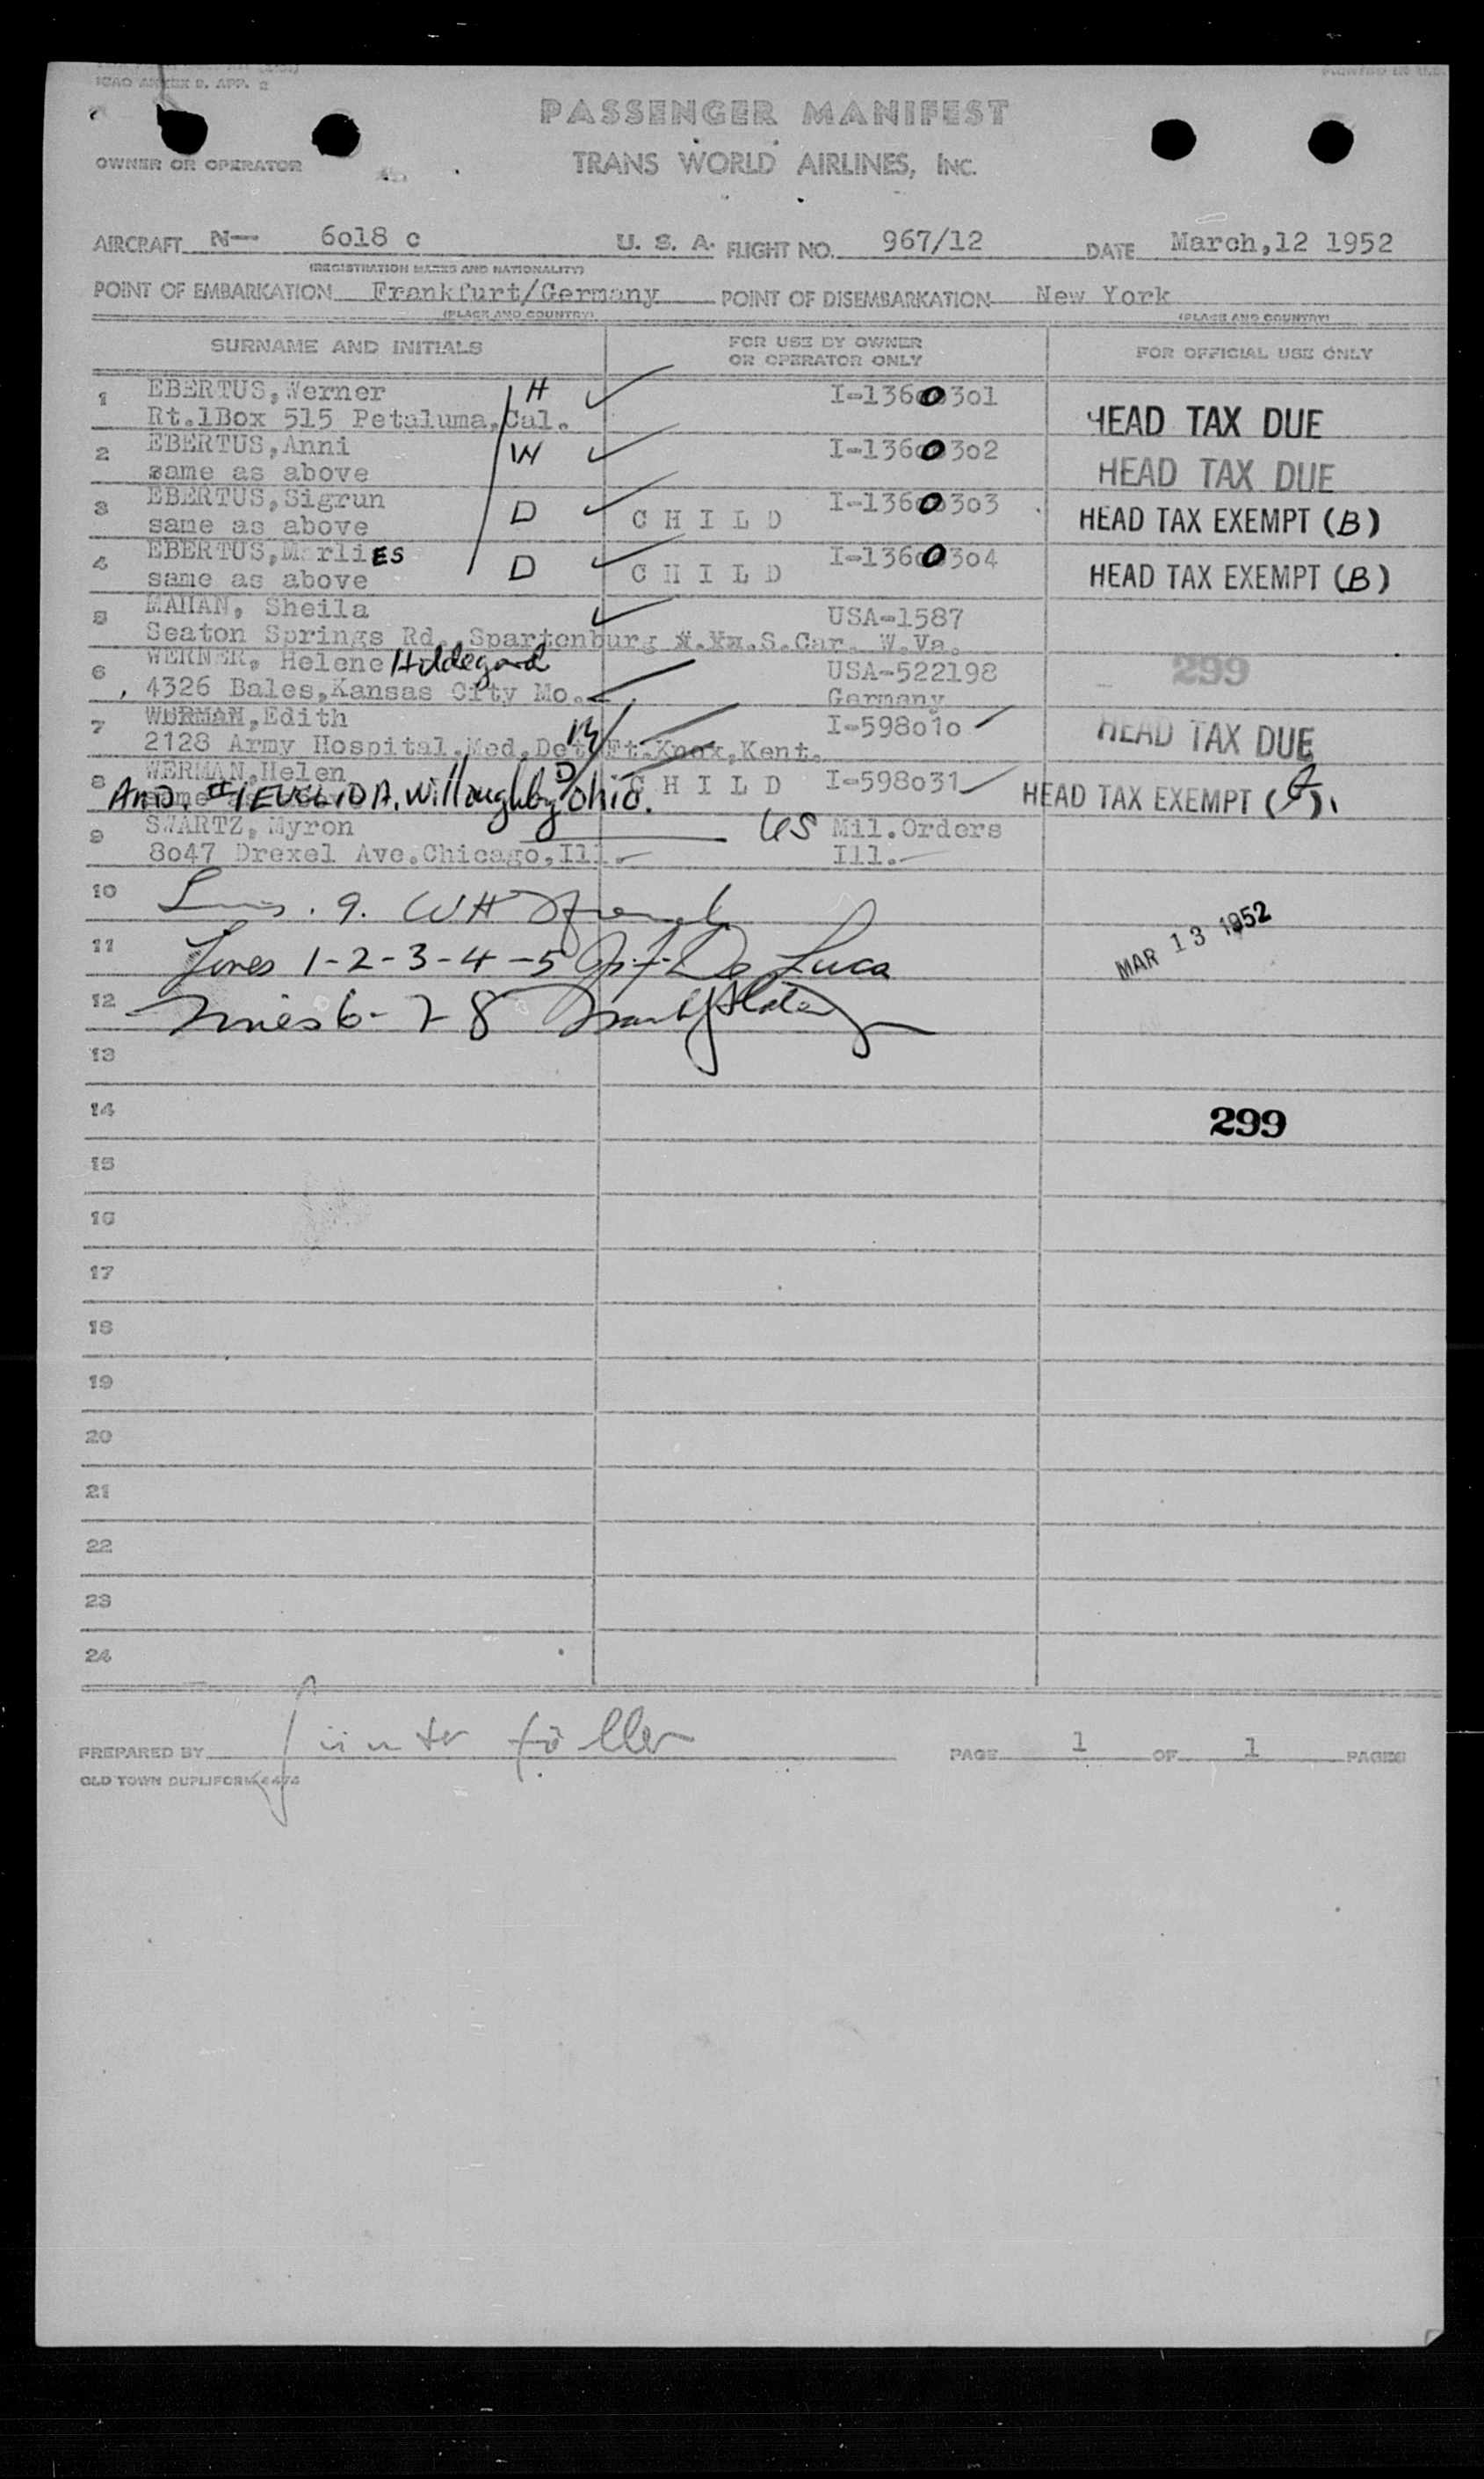 ICAO ANNEX 9. APP. 2
PASSENGER MANIFEST
OWNER OR OPERATOR
TRANS WORLD AIRLINES, INC.
AIRCRAFT N— 6018 c U. S. A. FLIGHT NO. 967/12 DATE March,12 1952
(REGISTRATION MARKS AND NATIONALITY)
POINT OF EMBARKATION Frankfurt/Germany POINT OF DISEMBARKATION New York
(PLACE AND COUNTRY) (PLACE AND COUNTRY)
SURNAME AND INITIALS FOR USE BY OWNER OR OPERATOR ONLY FOR OFFICIAL USE ONLY
1 EBERTUS,Werner H I-1360301
Rt.1Box 515 Petaluma,Cal. HEAD TAX DUE
2 EBERTUS,Anni W I-1360302
same as above HEAD TAX DUE
3 EBERTUS,Sigrun D I-1360303
same as above CHILD HEAD TAX EXEMPT (B)
4 EBERTUS,MarliES D I-1360304
same as above CHILD HEAD TAX EXEMPT (B)
5 MAHAN, Sheila USA-1587
Seaton Springs Rd. Spartenburg S.Car. W.Va.
6 WERNER, Helene Hildegard USA-522198 299
4326 Bales,Kansas City Mo. Germany
7 WERMAN,Edith I-598010 HEAD TAX DUE
2128 Army Hospital.Med.Det Ft.Knox,Kent.
8 WERMAN,Helen D CHILD I-598031 HEAD TAX EXEMPT
#1 EUCLID A. Willoughby Ohio.
9 SWARTZ, Myron US Mil.Orders
8047 Drexel Ave.Chicago,Ill. Ill.
10 9. WH
11 Lines 1-2-3-4-5 De Luca
MAR 13 1952
12 Lines 6-7 8
13
14 299
15
16
17
18
19
20
21
22
23
24
PREPARED BY PAGE 1 OF 1 PAGES
OLD TOWN DUPLIFORM